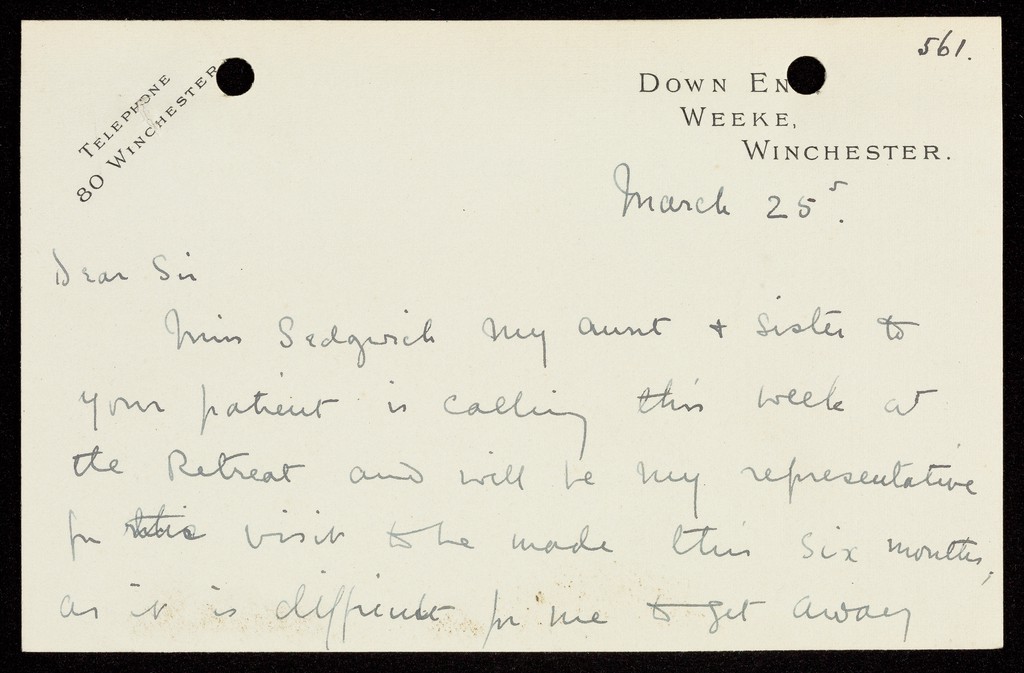 561.
TELEPHONE
80 WINCHESTER
DOWN EN
WEEKE,
WINCHESTER.
March 25.
Dear Sir
Miss Sedgwick my aunt + sister to
your patient is calling this week at
the Retreat and will be my representative
for visit to be made this six months,
as it is difficult for me to get away